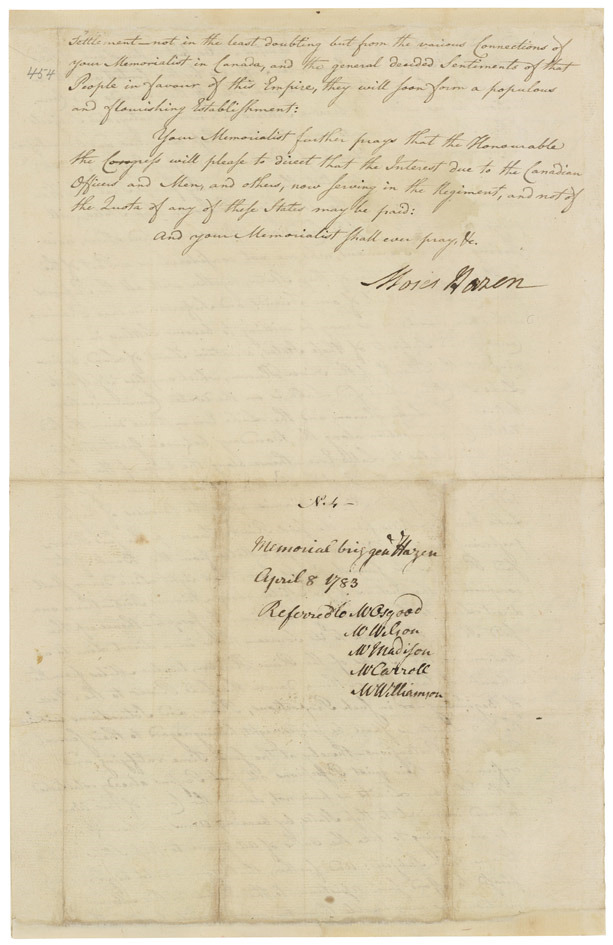 Settlement—not in the least doubting but from the various Connections of
your Memorialist in Canada, and the general decided Sentiments of that
454
People in favour of this Empire, they will soon form a populous
and flourishing Establishment:
Your Memorialist further prays that the Honourable
the Congress will please to direct that the Interest due to the Canadian
Officers and Men, and others, now serving in the Regiment, and not of
the Quota of any of these States may be paid:
And your Memorialist shall ever pray, &c.
Moses Hazen
N. 4 —
Memorial brig genl Hazen
April 8 1783
Referred to Mr Osgood
Mr Wilson
Mr Madison
Mr Carroll
Mr Williamson